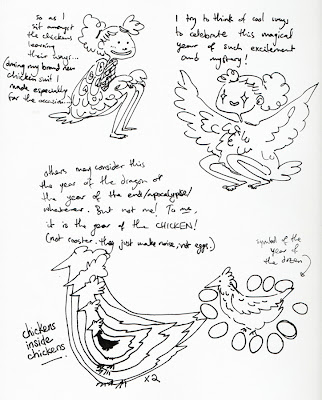 so as I
sit amongst
the chickens
learning
their ways...
(donning my brand new
chicken suit I
made especially
for the occasion...)
I try to think of cool ways
to celebrate this magical
year of such excitement
and mystery!
others may consider this
the year of the dragon or
the year of the end/apocalypse/
whatever. But not me! To me,
it is the year of the CHICKEN!
(not rooster. they just make noise, not eggs.)
symbol of the
year of
the dozen!
chickens
inside
chickens
x2